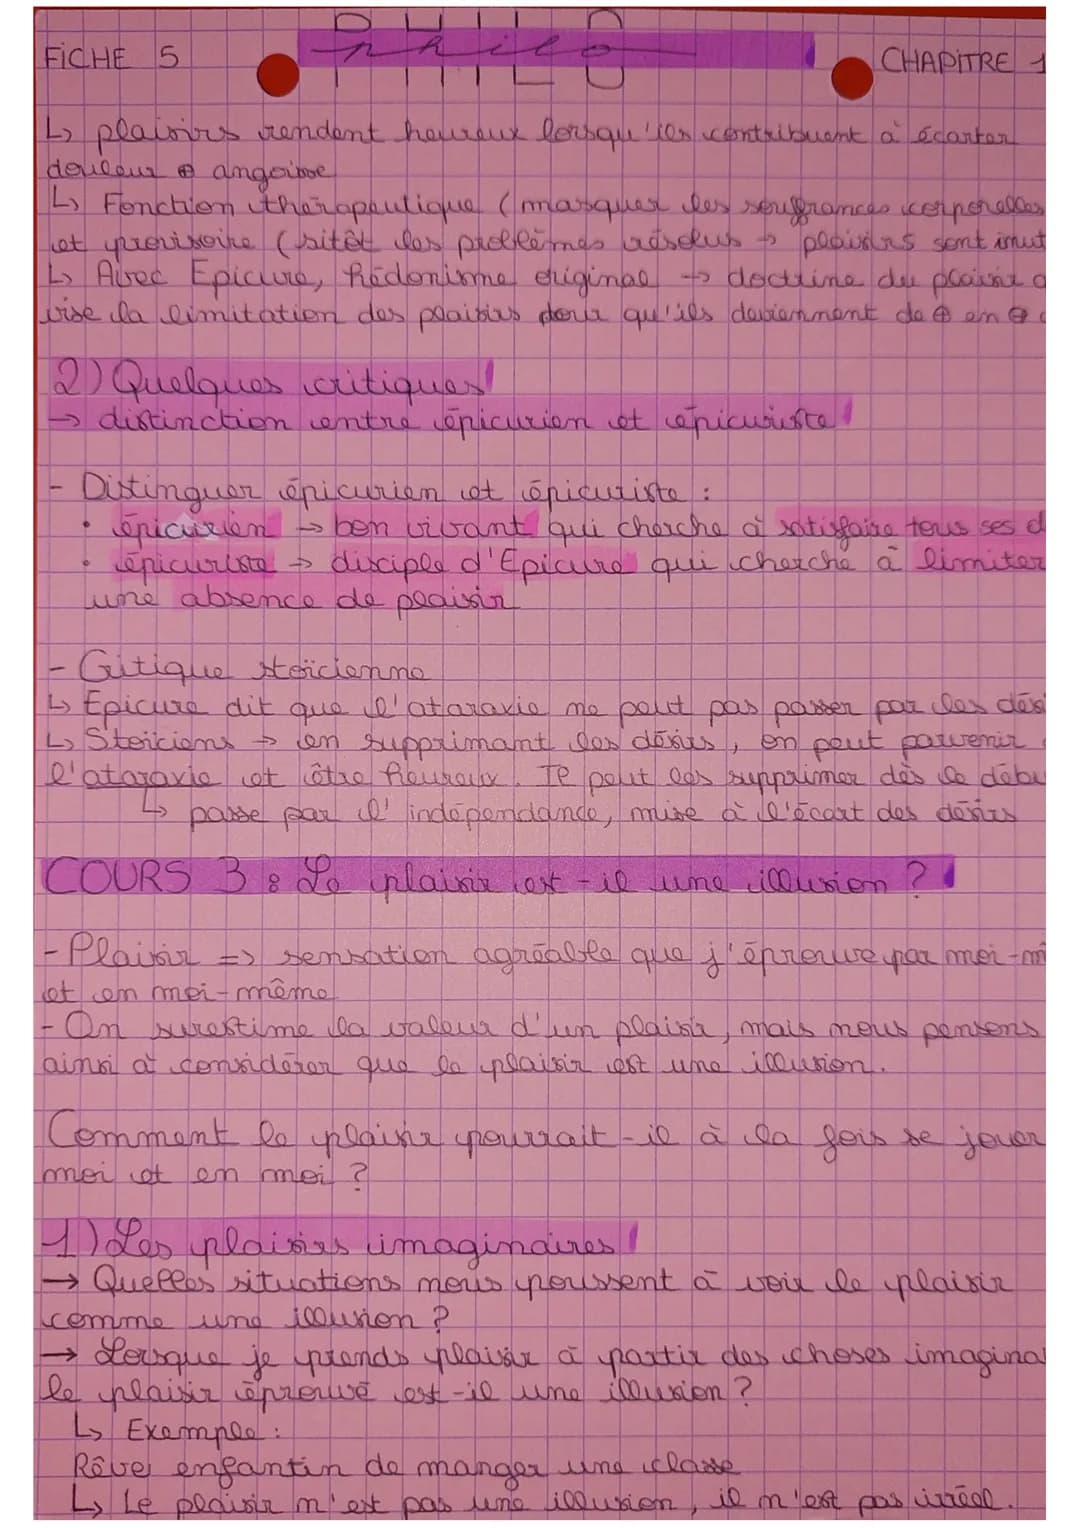 FICHE 5
philo
PHILO
CHAPITRE 1
↳ plaisirs rendent heureux lorsqu'ils contribuent à écarter
douleur ⊕ angoisse
↳ Fonction thérapeutique (masquer les souffrances corporelles
et provisoire (sitôt les problèmes résolus → plaisirs sont inut
↳ Avec Epicure, hédonisme original → doctrine du plaisir q
vise la limitation des plaisirs pour qu'ils deviennent de ⊕ en ⊕
2) Quelques critiques
→ distinction entre épicurien et épicuriste
- Distinguer épicurien et épicuriste :
• épicurien → bon vivant qui cherche à satisfaire tous ses d
• épicuriste → disciple d'Epicure qui cherche à limiter
une absence de plaisir
- Critique stoïcienne
↳ Epicure dit que l'ataraxie ne peut pas passer par les dési
↳ Stoïciens → en supprimant les désirs, on peut parvenir
l'ataraxie et être heureux. Il peut les supprimer dès le débu
↳ passe par l'indépendance, mise à l'écart des désirs
COURS 3 : Le plaisir est-il une illusion ?
- Plaisir => sensation agréable que j'éprouve par moi-mê
et en moi-même
- On surestime la valeur d'un plaisir, mais nous pensons
ainsi à considérer que le plaisir est une illusion.
Comment le plaisir pourrait-il à la fois se jouer
moi et en moi ?
1) Les plaisirs imaginaires
→ Quelles situations nous poussent à voir le plaisir
comme une illusion ?
→ Lorsque je prends plaisir à partir des choses imagina
le plaisir éprouvé est-il une illusion ?
↳ Exemple :
Rêve enfantin de manger une classe
↳ Le plaisir n'est pas une illusion, il n'est pas irréel.